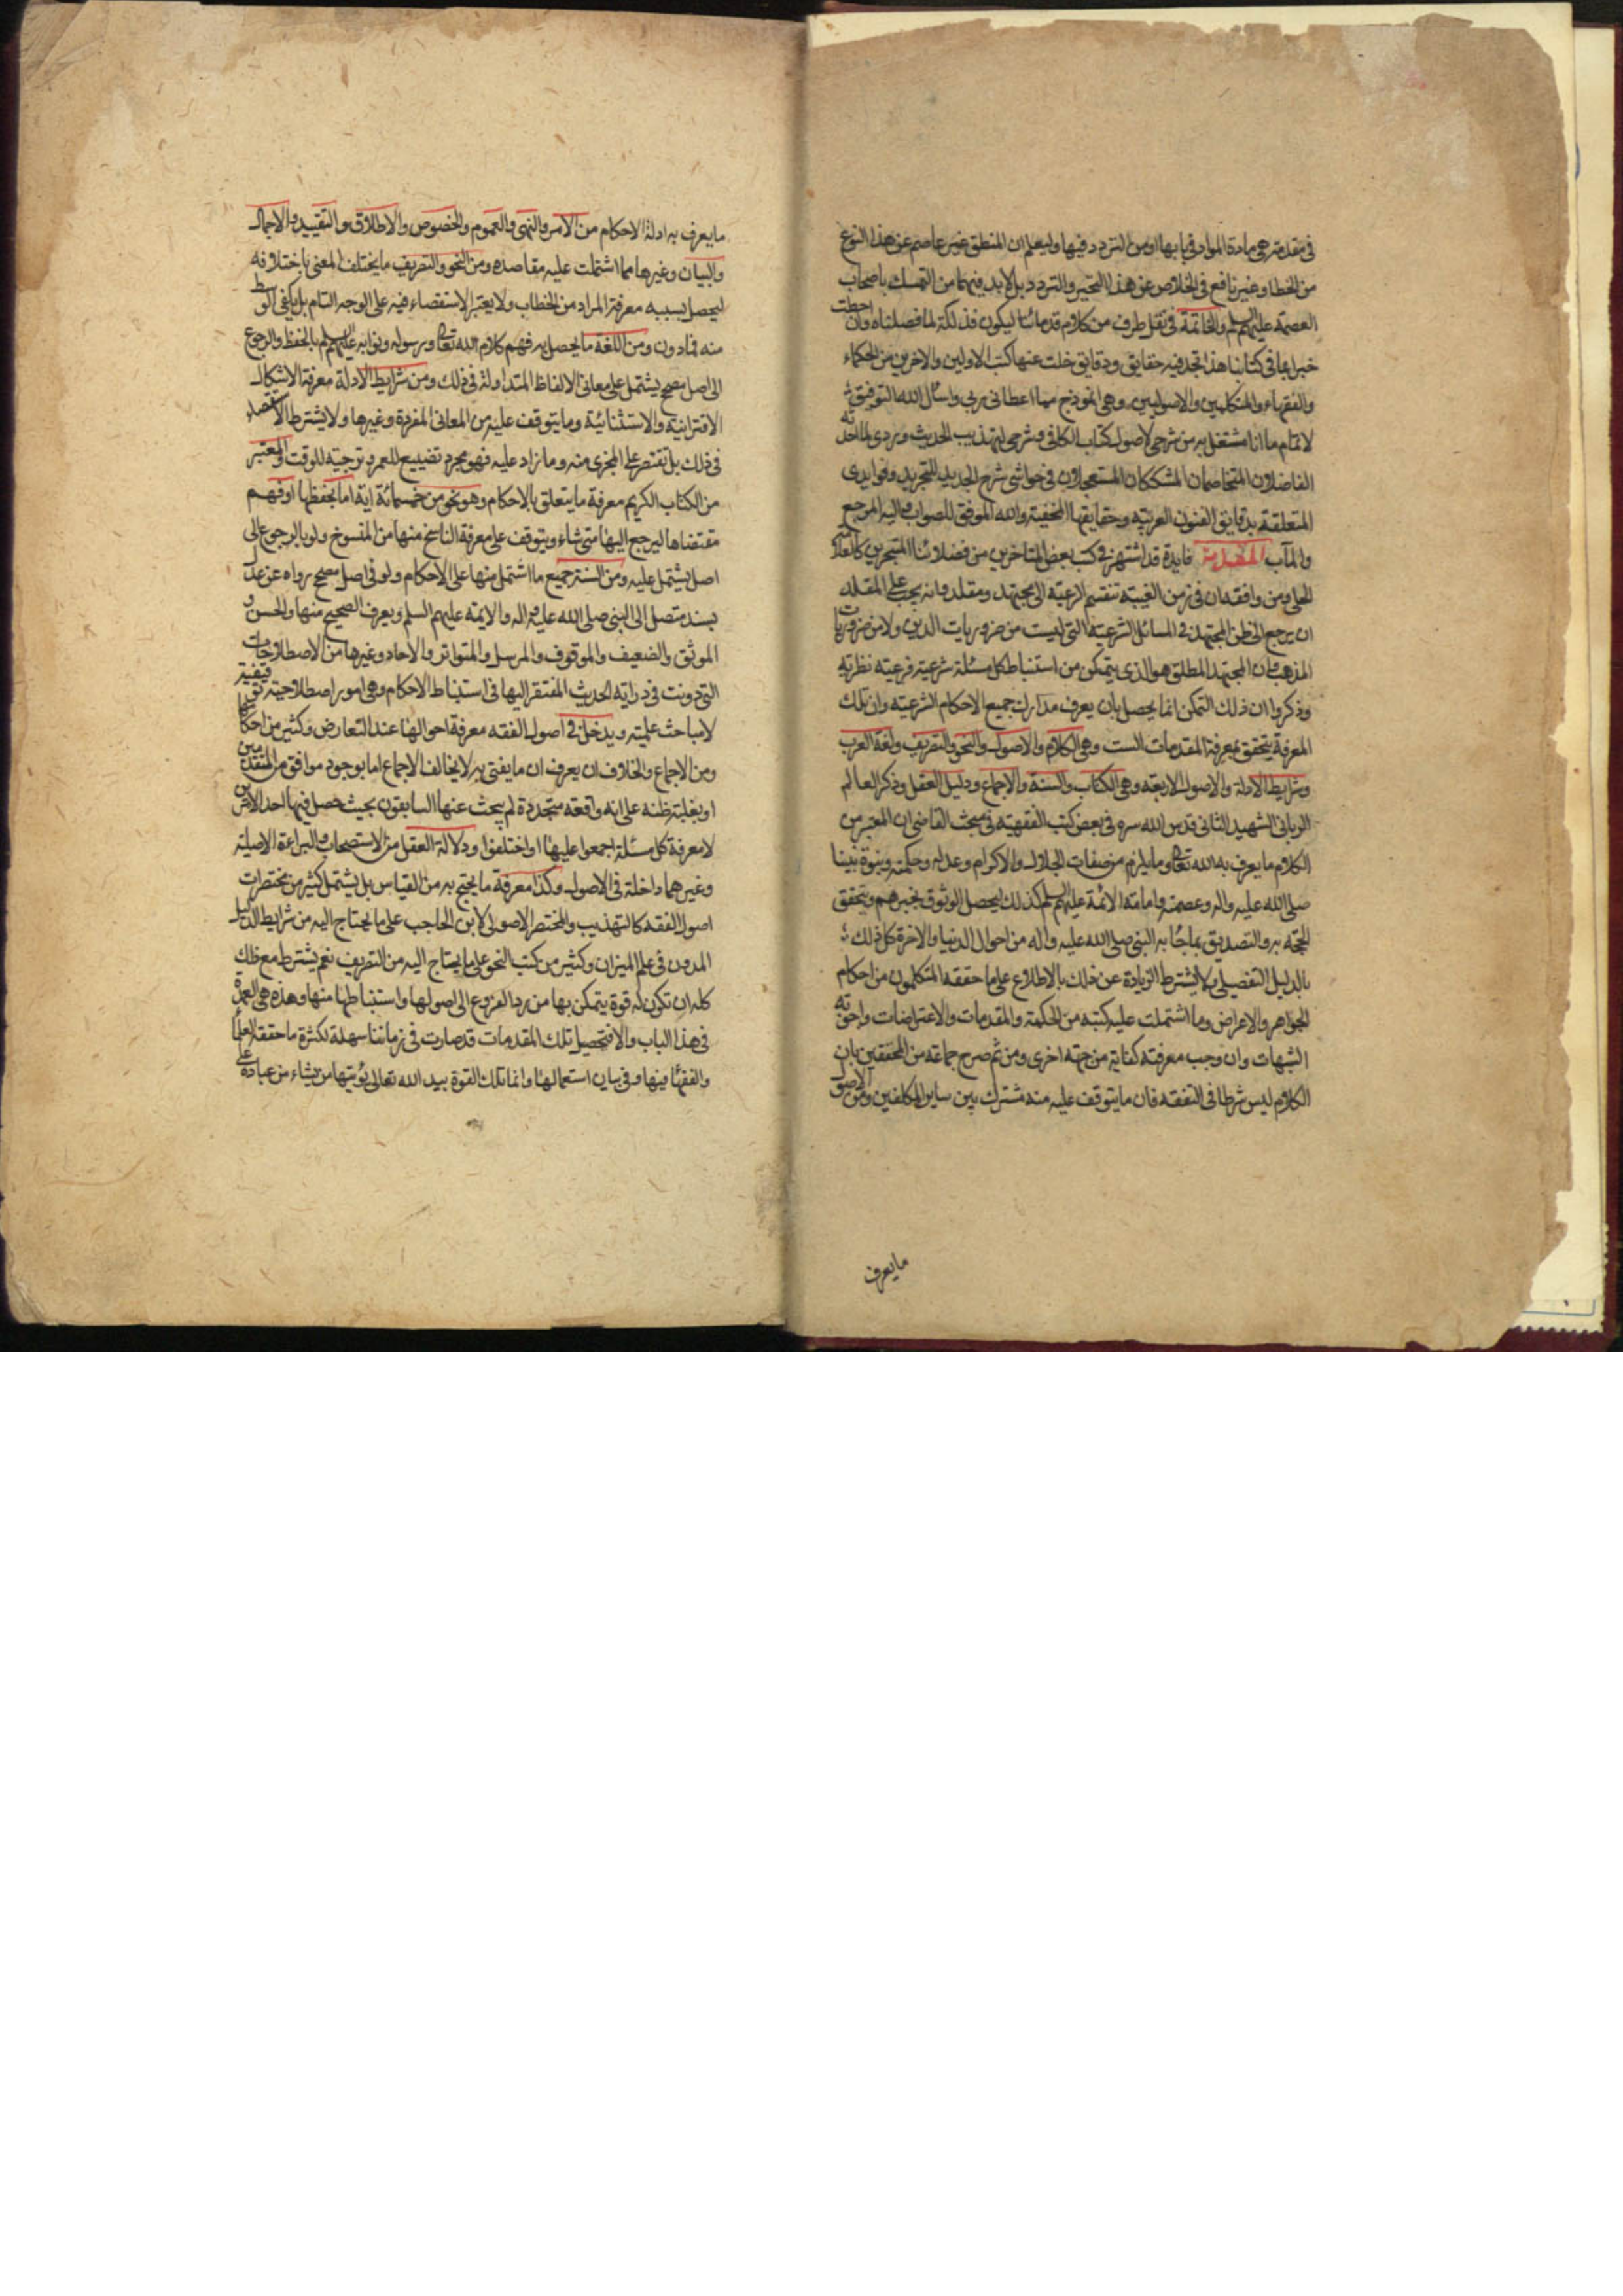 في مقدمة هي مادة المواد في بابها او من التردد فيها وليعلم ان المنطق غير عاصم عن هذا النوع
من الخطا وغير نافع في الخلاص عن هذا التحير والتردد بل لابد فيهما من التمسك باصحاب
العصمة عليهم السلم والخاتمة في نقل طرف من كلام قدمائنا ليكون فذلكة لما فصلناه وان احطت
خبرا بما في كتابنا هذا تجد فيه حقايق ودقايق خلت عنها كتب الاولين والاخرين من الحكماء
والفقهاء والمتكلمين والاصوليين وهي انموذج مما اعطاني ربي واسأل الله التوفيق
لاتمام ما انا مشتغل به من شرحي لاصول كتاب الكافي وشرحي لتهذيب الحديث وردي لما احدثه
الفاضلان المتخاصمان المشككان المستعجلان في حواشي شرح الجديد للتجريد وفوايدي
المتعلقة بدقايق الفنون العربية وحقايقها الخفية والله الموفق للصواب واليه المرجع
والمآب المقدمة فايدة قد اشتهر في كتب بعض المتاخرين من فضلائنا المتبحرين كالعلامة
الحلي ومن وافقه ان في زمن الغيبة تنقسم الرعية الى مجتهد ومقلد وانه يجب على المقلد
ان يرجع الى ظن المجتهد في المسائل الشرعية التي ليست من ضروريات الدين ولا من ضروريات
المذهب وان المجتهد المطلق هو الذي يتمكن من استنباط كل مسئلة شرعية فرعية نظرية
وذكروا ان ذلك التمكن انما يحصل بان يعرف مدارك جميع الاحكام الشرعية وان تلك
المعرفة يتحقق بمعرفة المقدمات الست وهي الكلام والاصول والنحو والتصريف ولغة العرب
وشرايط الادلة والاصول الاربعة وهي الكتاب والسنة والاجماع ودليل العقل وذكر العالم
الرباني الشهيد الثاني قدس الله سره في بعض كتب الفقهية في مبحث القاضي ان المعتبر من
الكلام ما يعرف به الله تعالى وما يلزم من صفات الجلال والاكرام وعدله وحكمته ونبوة نبينا
صلى الله عليه واله وعصمته وامامة الائمة عليهم السلم كذلك ليحصل الوثوق بخبرهم ويتحقق
الحجة به والتصديق بما جاء به النبي صلى الله عليه وآله من احوال الدنيا والاخرة كل ذلك
بالدليل التفصيلي ولا يشترط الزيادة عن ذلك بالاطلاع على ما حققه المتكلمون من احكام
الجواهر والاعراض وما اشتملت عليه كتبه من الحكمة والمقدمات والاعتراضات واجوبة
الشبهات وان وجب معرفته كفاية من جهة اخرى ومن ثم صرح جماعة من المحققين بان
الكلام ليس شرطا في التفقه فان ما يتوقف عليه منه مشترك بين ساير المكلفين ومن الاصول
ما يعرف
ما يعرف به ادلة الاحكام من الامر والنهي والعموم والخصوص والاطلاق والتقييد والاجمال
والبيان وغيرها مما اشتملت عليه مقاصده ومن النحو والتصريف ما يختلف المعنى باختلافه
ليحصل بسببه معرفة المراد من الخطاب ولا يعتبر الاستقصاء فيه على الوجه التام بل يكفي الوسط
منه فما دون ومن اللغة ما يحصل به فهم كلام الله تعالى ورسوله ونوابه عليهم السلم بالحفظ والرجوع
الى اصل مصحح يشتمل على معاني الالفاظ المتداولة في ذلك ومن شرايط الادلة معرفة الاشكال
الاقترانية والاستثنائية وما يتوقف عليه من المعاني المفردة وغيرها ولا يشترط الاستقصاء
في ذلك بل تقتصر على المجزي منه وما زاد عليه فهو مجرد تضييع للعمر وترجية للوقت والمعتبر
من الكتاب الكريم معرفة ما يتعلق بالاحكام وهو نحو من خمسمائة اية اما بحفظها او فهم
مقتضاها ليرجع اليها متى شاء ويتوقف على معرفة الناسخ منها من المنسوخ ولو بالرجوع الى
اصل يشتمل عليه ومن السنة جميع ما اشتمل منها على الاحكام ولو في اصل مصحح رواه عن عدل
بسند متصل الى النبي صلى الله عليه واله والايمة عليهم السلم ويعرف الصحيح منها والحسن و
الموثق والضعيف والموقوف والمرسل والمتواتر والاحاد وغيرها من الاصطلاحات
التي دونت في دراية الحديث المفتقر اليها في استنباط الاحكام وهي امور اصطلاحية توقيفية
لا مباحث علمية ويدخل في اصول الفقه معرفة احوالها عند التعارض وكثير من احكامها
ومن الاجماع والخلاف ان يعرف ان ما يفتي به لا يخالف الاجماع اما بوجود موافق من المتقدمين
او بغلبة ظنه على انه واقعة متجددة لم يبحث عنها السابقون بحيث حصل فيها احد الامرين
لا معرفة كل مسئلة اجمعوا عليها او اختلفوا ودلالة العقل من الاستصحاب والبراءة الاصلية
وغيرهما داخلة في الاصول وكذا معرفة ما يحتج به من القياس بل يشتمل كثير من مختصرات
اصول الفقه كالتهذيب والمختصر الاصولي لابن الحاجب على ما يحتاج اليه من شرايط الدليل
المدون في علم الميزان وكثير من كتب النحو على ما يحتاج اليه من التصريف نعم يشترط مع ذلك
كله ان تكون له قوة يتمكن بها من رد الفروع الى اصولها واستنباطها منها وهذه هي العمدة
في هذا الباب والا فتحصيل تلك المقدمات قد صارت في زماننا سهلة لكثرة ما حققه العلماء
والفقهاء فيها وفي بيان استعمالها وانما تلك القوة بيد الله تعالى يؤتيها من يشاء من عباده على